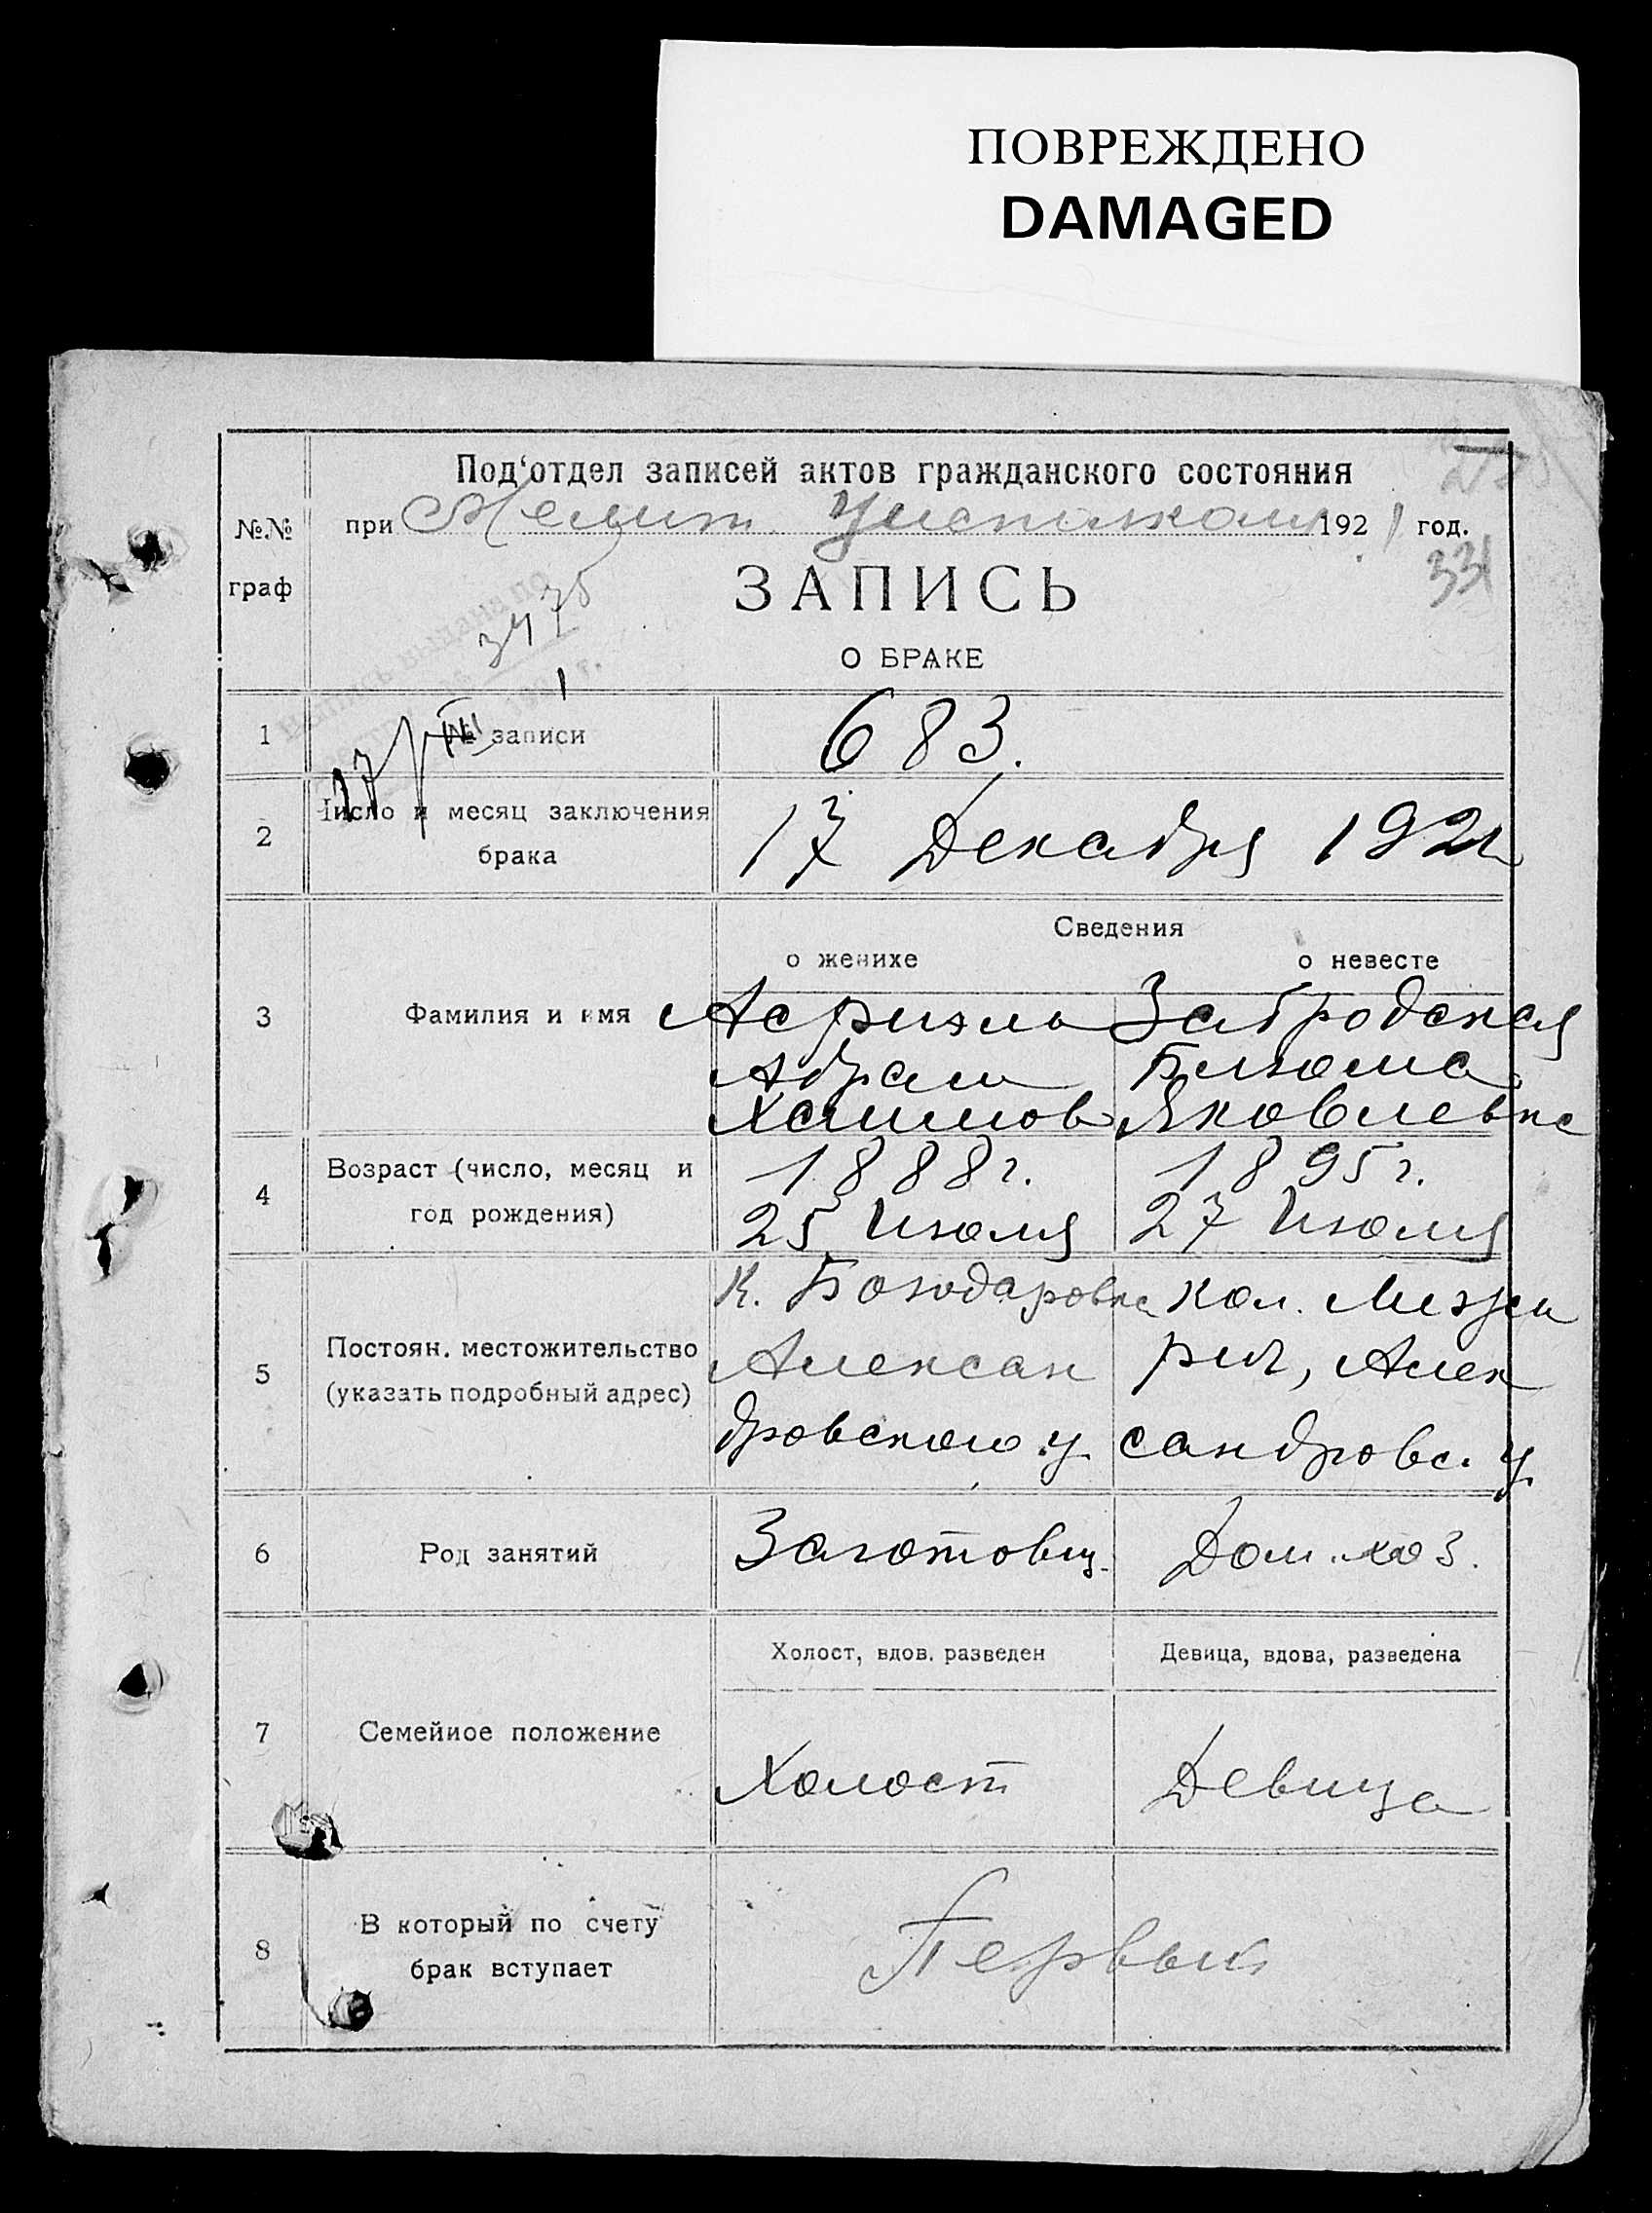 ПОВРЕЖДЕНО
DAMAGED
Под'отдел записей актов гражданского состояния
№№ граф
при Мелит. Уисполкоме 1921 год.
331
ЗАПИСЬ
О БРАКЕ
1 № записи 683.
2 Число и месяц заключения брака 17 Декабря 1921
Сведения
о женихе о невесте
3 Фамилия и имя
Асриэль Забродская
Абрам Блюма
Хаимов Яковлевна
4 Возраст (число, месяц и год рождения)
1888 г. 1895 г.
25 Июля 27 Июля
5 Постоян. местожительство (указать подробный адрес)
К. Богодаровка Кол. Межи
Алексан рич, Алек
дровского у. сандровс. у.
6 Род занятий Заготовщ. Дом. хоз.
Холост, вдов. разведен Девица, вдова, разведена
7 Семейное положение Холост Девица
8 В который по счету брак вступает Первый